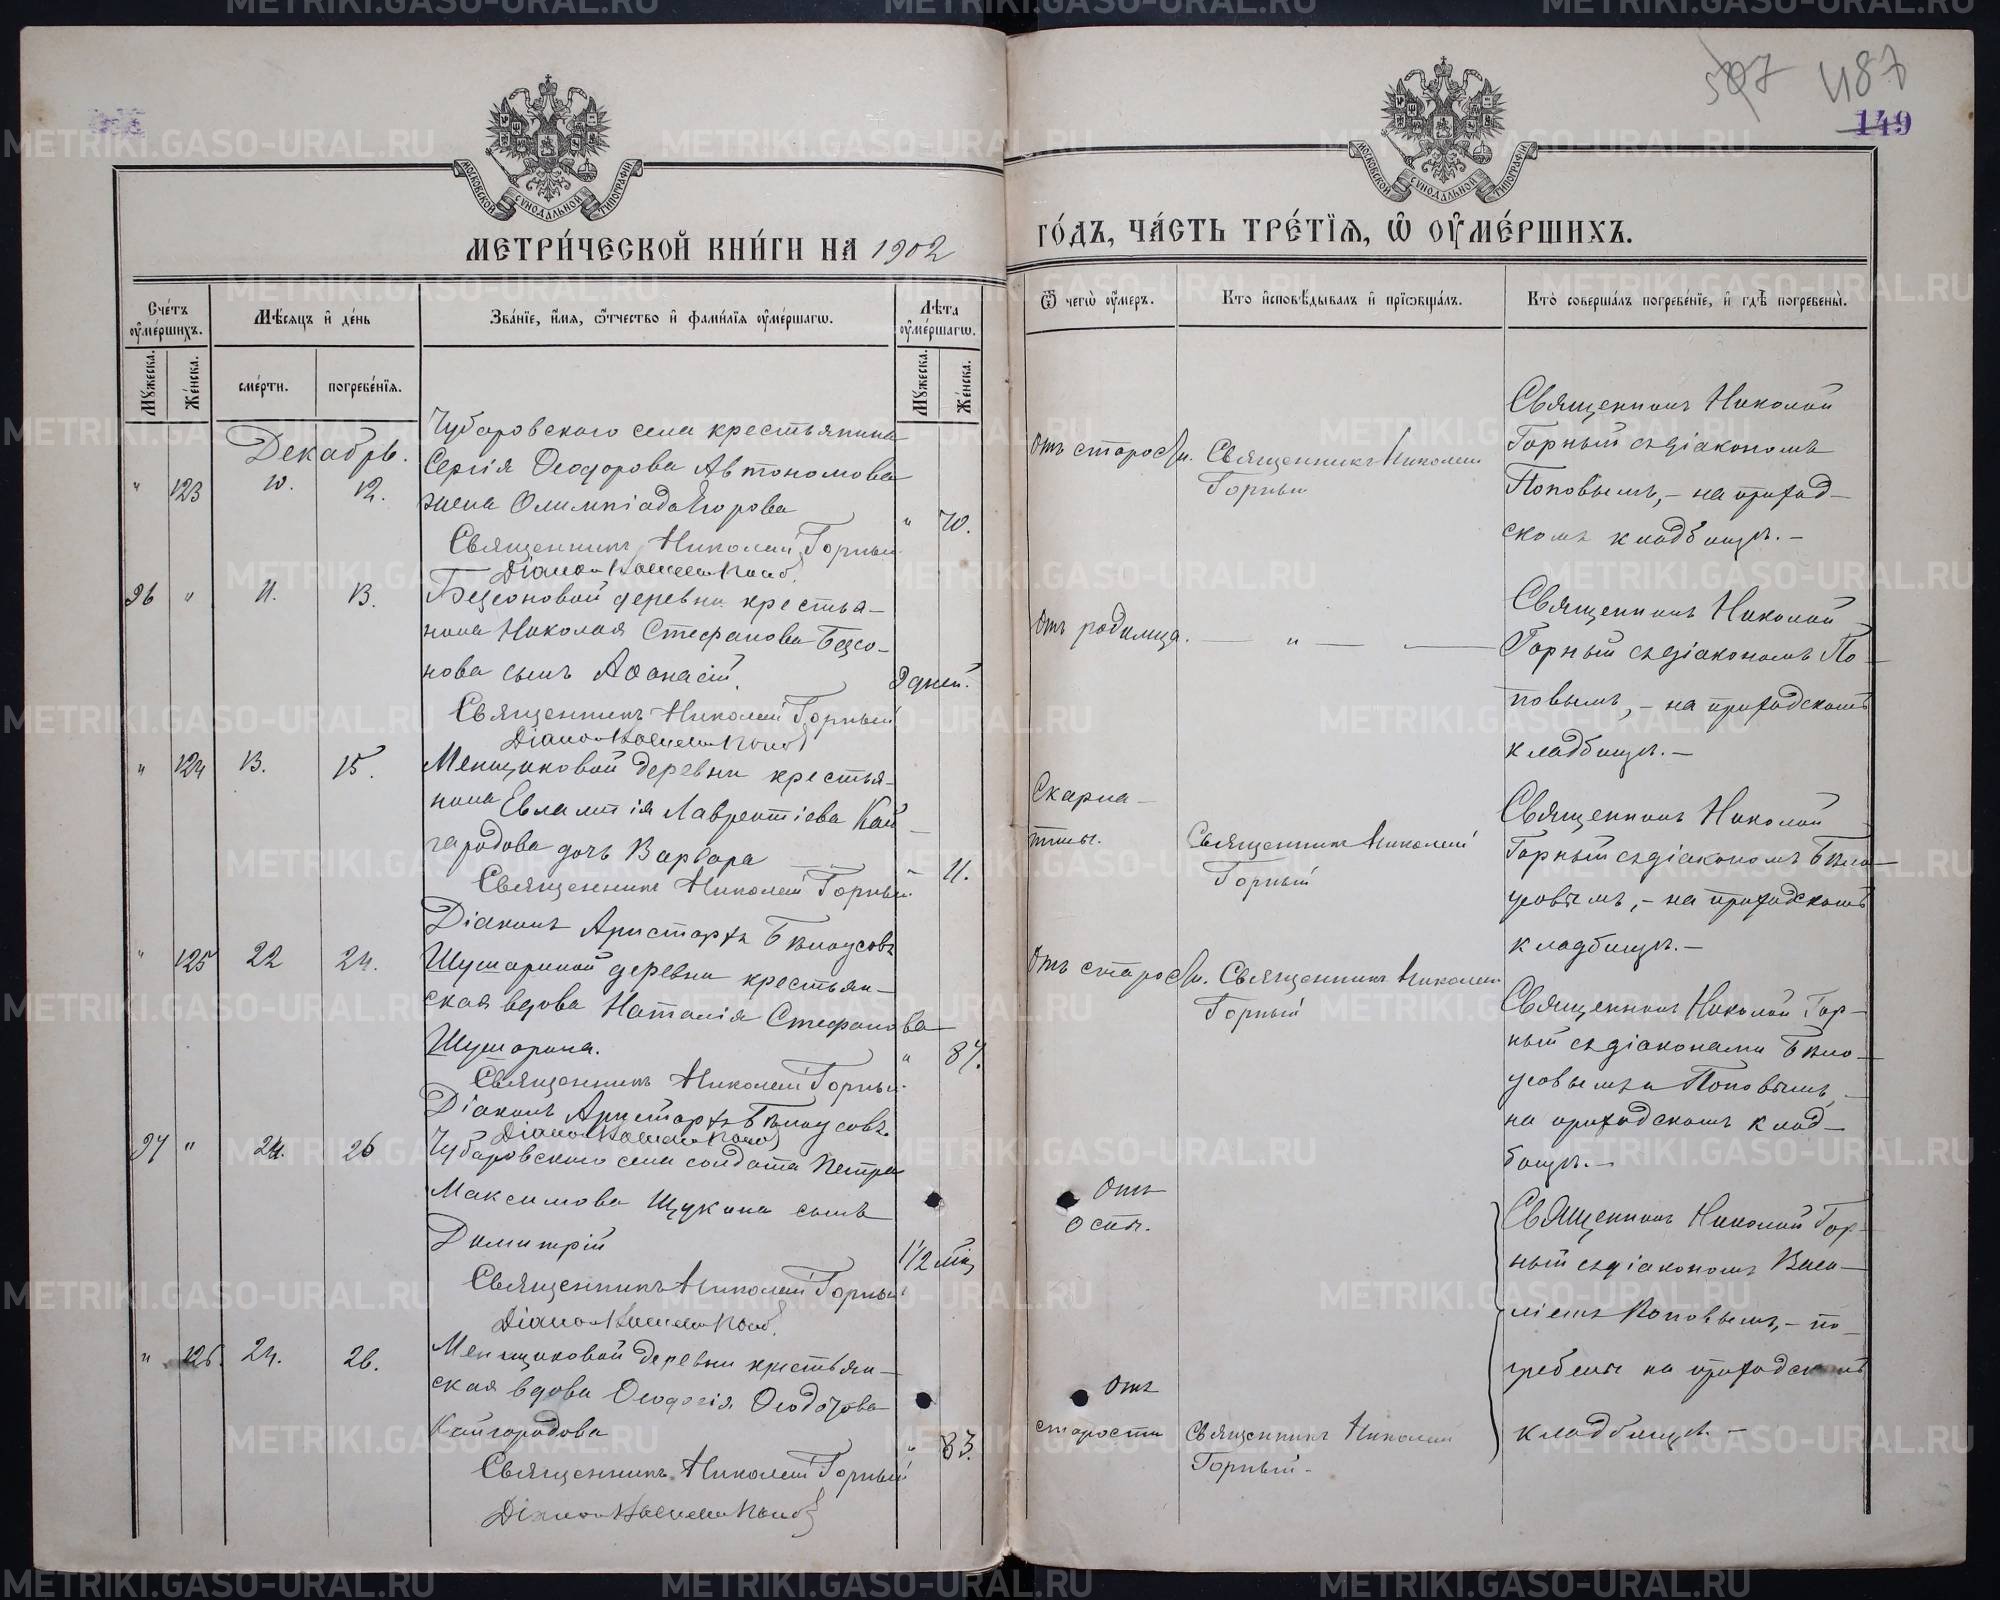 507 487
149
МОСКОВСКОЙ СѴНОДАЛЬНОЙ ТИПОГРАФІИ
МОСКОВСКОЙ СѴНОДАЛЬНОЙ ТИПОГРАФІИ
МЕТРИ́ЧЕСКОЙ КНИ́ГИ НА 1902
ГО́ДЪ, ЧА́СТЬ ТРЕ́ТІЯ, Ѽ ОУ҆МЕ́РШИХЪ.
Сче́тъ оу҆ме́ршихъ.
Мꙋжеска.
Же́нска.
Мѣ́сяцъ и҆ де́нь
сме́рти.
погребе́нїя.
Зва́нїе, и҆́мя, ѻ҆́тчество и҆ фами́лїя оу҆ме́ршагѡ.
Лѣ́та оу҆ме́ршагѡ.
Мꙋжеска.
Же́нска.
Ѿ чегѡ̀ оу҆́меръ.
Кто̀ и҆сповѣ́дывалъ и҆ прїѡбща́лъ.
Кто̀ соверша́лъ погребе́нїе, и҆ гдѣ̀ погребены̀.
Декабрь.
" 123 10. 12.
Чубаровскаго села крестьянина
Сергія Ѳеодорова Автономова
жена Олимпіада Егорова
" 70.
Священникъ Николай Горный
Діаконъ
Отъ старости. Священникъ Николай
Горный
Священникъ Николай
Горный съ діакономъ
Поповымъ, – на приход-
скомъ кладбищѣ. –
26 " 11. 13.
Безсоновой деревни крестья-
нина Николая Стефанова Безсо-
нова сынъ Аѳанасій.
9 дней.
Священникъ Николай Горный
Діаконъ
Отъ родимца. — " —
Священникъ Николай
Горный съ діакономъ По-
повымъ, – на приходскомъ
кладбищѣ. –
" 124 13. 15.
Менщиковой деревни крестья-
нина Евлампія Лаврентіева Кай-
городова дочь Варвара
11.
Священникъ Николай Горный
Діаконъ Аристархъ Бѣлоусовъ
Скарла-
тины.
Священникъ Николай
Горный
Священникъ Николай
Горный съ діакономъ Бѣло-
усовымъ, – на приходскомъ
кладбищѣ. –
" 125 22 24.
Шушариной деревни крестьян-
ская вдова Наталія Стефанова
Шушарина.
" 87.
Священникъ Николай Горный
Діаконъ Аристархъ Бѣлоусовъ.
Діаконъ
Отъ старости. Священникъ Николай
Горный
Священникъ Николай Гор-
ный съ діаконами Бѣло-
усовымъ и Поповымъ, –
на приходскомъ клад-
бищѣ. –
27 " 24. 26
Чубаровскаго села солдата Петра
Максимова Щукина сынъ
Димитрій
1½ мѣс.
Священникъ Николай Горный
Діаконъ
Отъ
оспы.
Священникъ Николай Гор-
ный съ діакономъ Васи-
ліемъ Поповымъ, – по-
гребены на приходскомъ
кладбищѣ. –
" 126. 24. 26.
Менщиковой деревни крестьян-
ская вдова Ѳеодосія Ѳеодорова
Кайгородова
" 83.
Священникъ Николай Горный
Діаконъ
Отъ
старости
Священникъ Николай
Горный. –
METRIKI.GASO-URAL.RU